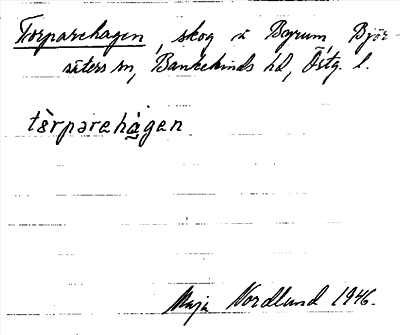 Torparehagen, skog å Byrum, Björ-
säters sn, Bankekinds hd, Östg. l.
tòrparehàgen
Maja Nordlund 1946.